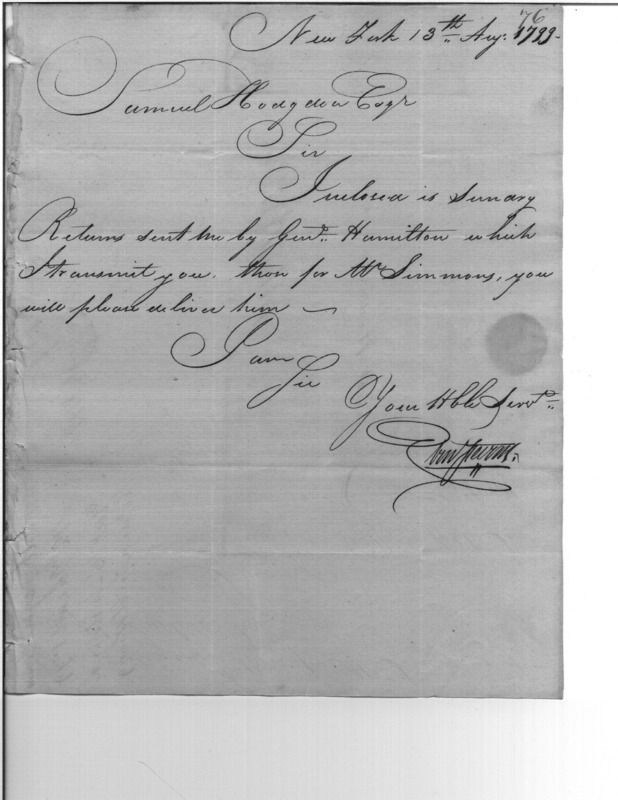 76
New York 13th Augt. 1799.
Samuel Hodgdon Esqr
Sir
Inclosed is Sundry
Returns sent me by Genl. Hamilton which
I transmit you. thos for Mr. Simmons, you
will please deliver him —
I am
Sir
Your Hble Servt.
Eben Stevens.